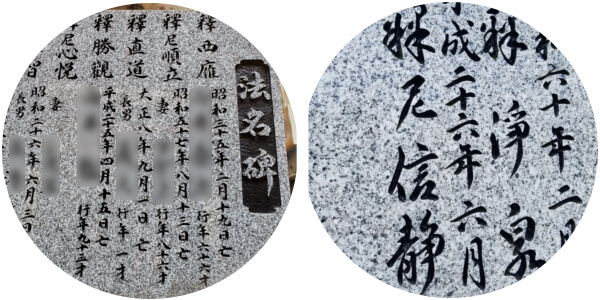 法名碑
釋西雁
昭和三十五年二月十九日亡
行年六十六才
釋尼順立
妻
昭和五十七年八月十三日亡
行年八十六才
釋直道
大正八年九月一日亡
長男
行年一才
釋勝觀
平成二十五年四月十五日亡
行年九十二才
尼心悦
妻
長男
昭和二十六年六月三日
六十年二月
釋淨泉
成二十六年六月
釋尼信静